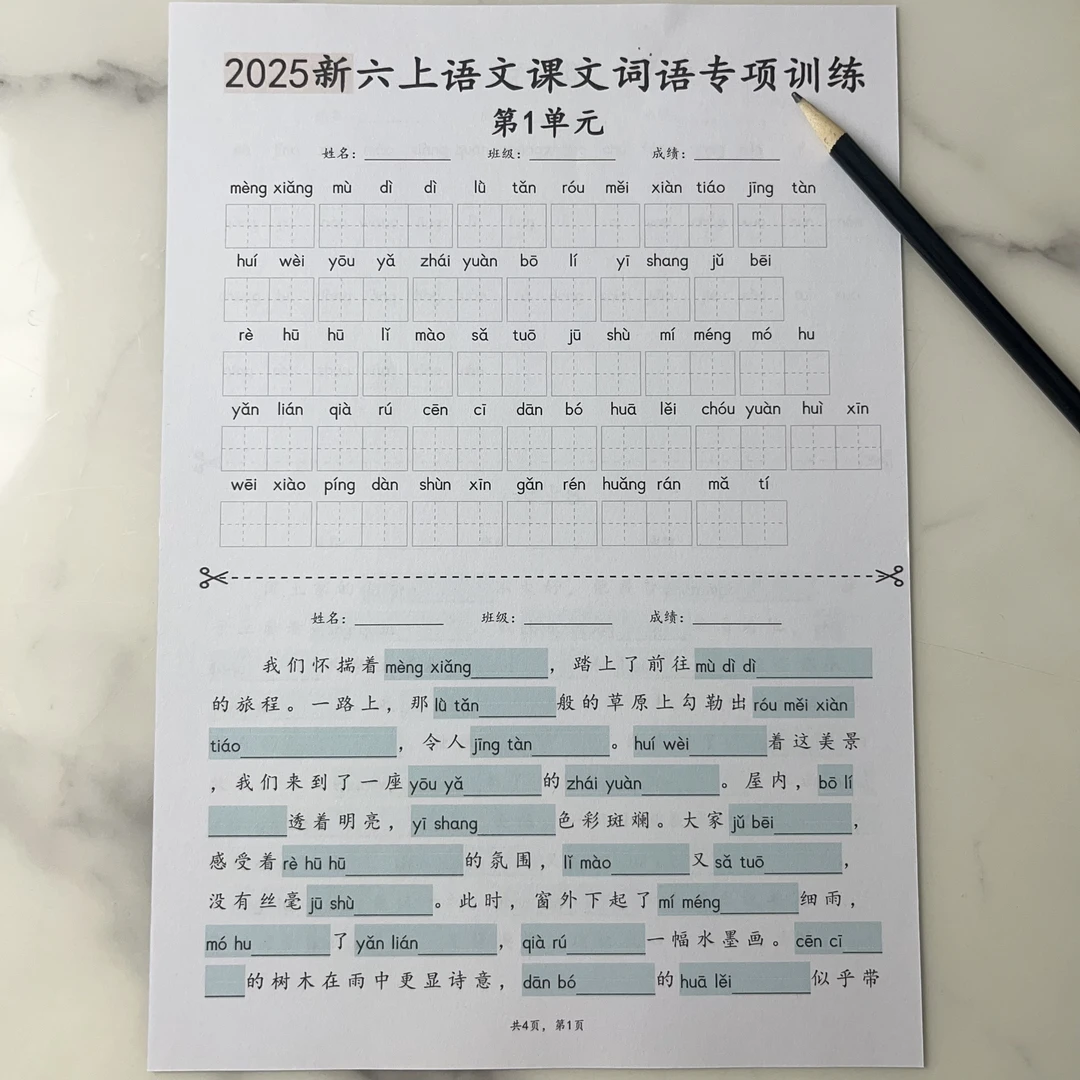 2025新六上语文课文词语专项训练
第1单元
姓名：________ 班级：________ 成绩：________
mèng xiǎng mù dì dì lù tǎn róu měi xiàn tiáo jīng tàn
huí wèi yōu yǎ zhái yuàn bō lí yī shang jǔ bēi
rè hū hū lǐ mào sǎ tuō jū shù mí méng mó hu
yǎn lián qià rú cēn cī dān bó huā lěi chóu yuàn huì xīn
wēi xiào píng dàn shùn xīn gǎn rén huǎng rán mǎ tí
姓名：________ 班级：________ 成绩：________
我们怀揣着mèng xiǎng________，踏上了前往mù dì dì________
的旅程。一路上，那lù tǎn________般的草原上勾勒出róu měi xiàn
tiáo________，令人jīng tàn________。huí wèi________着这美景
，我们来到了一座yōu yǎ________的zhái yuàn________。屋内，bō lí
________透着明亮，yī shang________色彩斑斓。大家jǔ bēi________，
感受着rè hū hū________的氛围，lǐ mào________又sǎ tuō________，
没有丝毫jū shù________。此时，窗外下起了mí méng________细雨，
mó hu________了yǎn lián________，qià rú________一幅水墨画。cēn cī____
____的树木在雨中更显诗意，dān bó________的huā lěi________似乎带
共4页，第1页